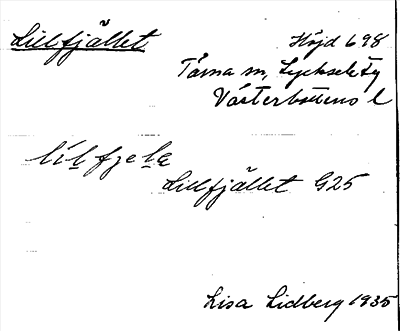 Lillfjället Höjd 698
Tärna sn, Lycksele ty
Västerbottens l
lilfjela
Lillfjället G25
Lisa Lidberg 1935